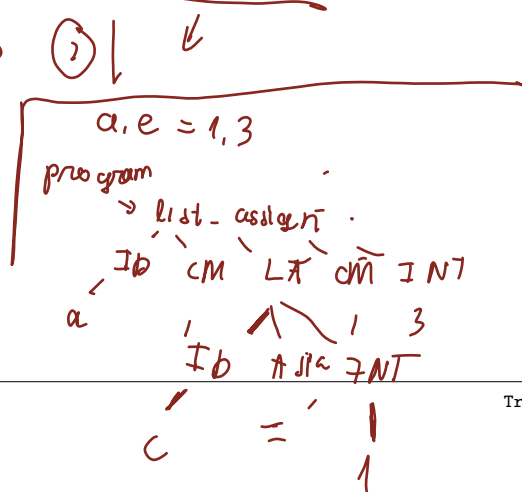 2
a, e = 1, 3
program
list_assign
ID CM LA CM INT
a , 3
ID ASIG INT
Tr
c = 1